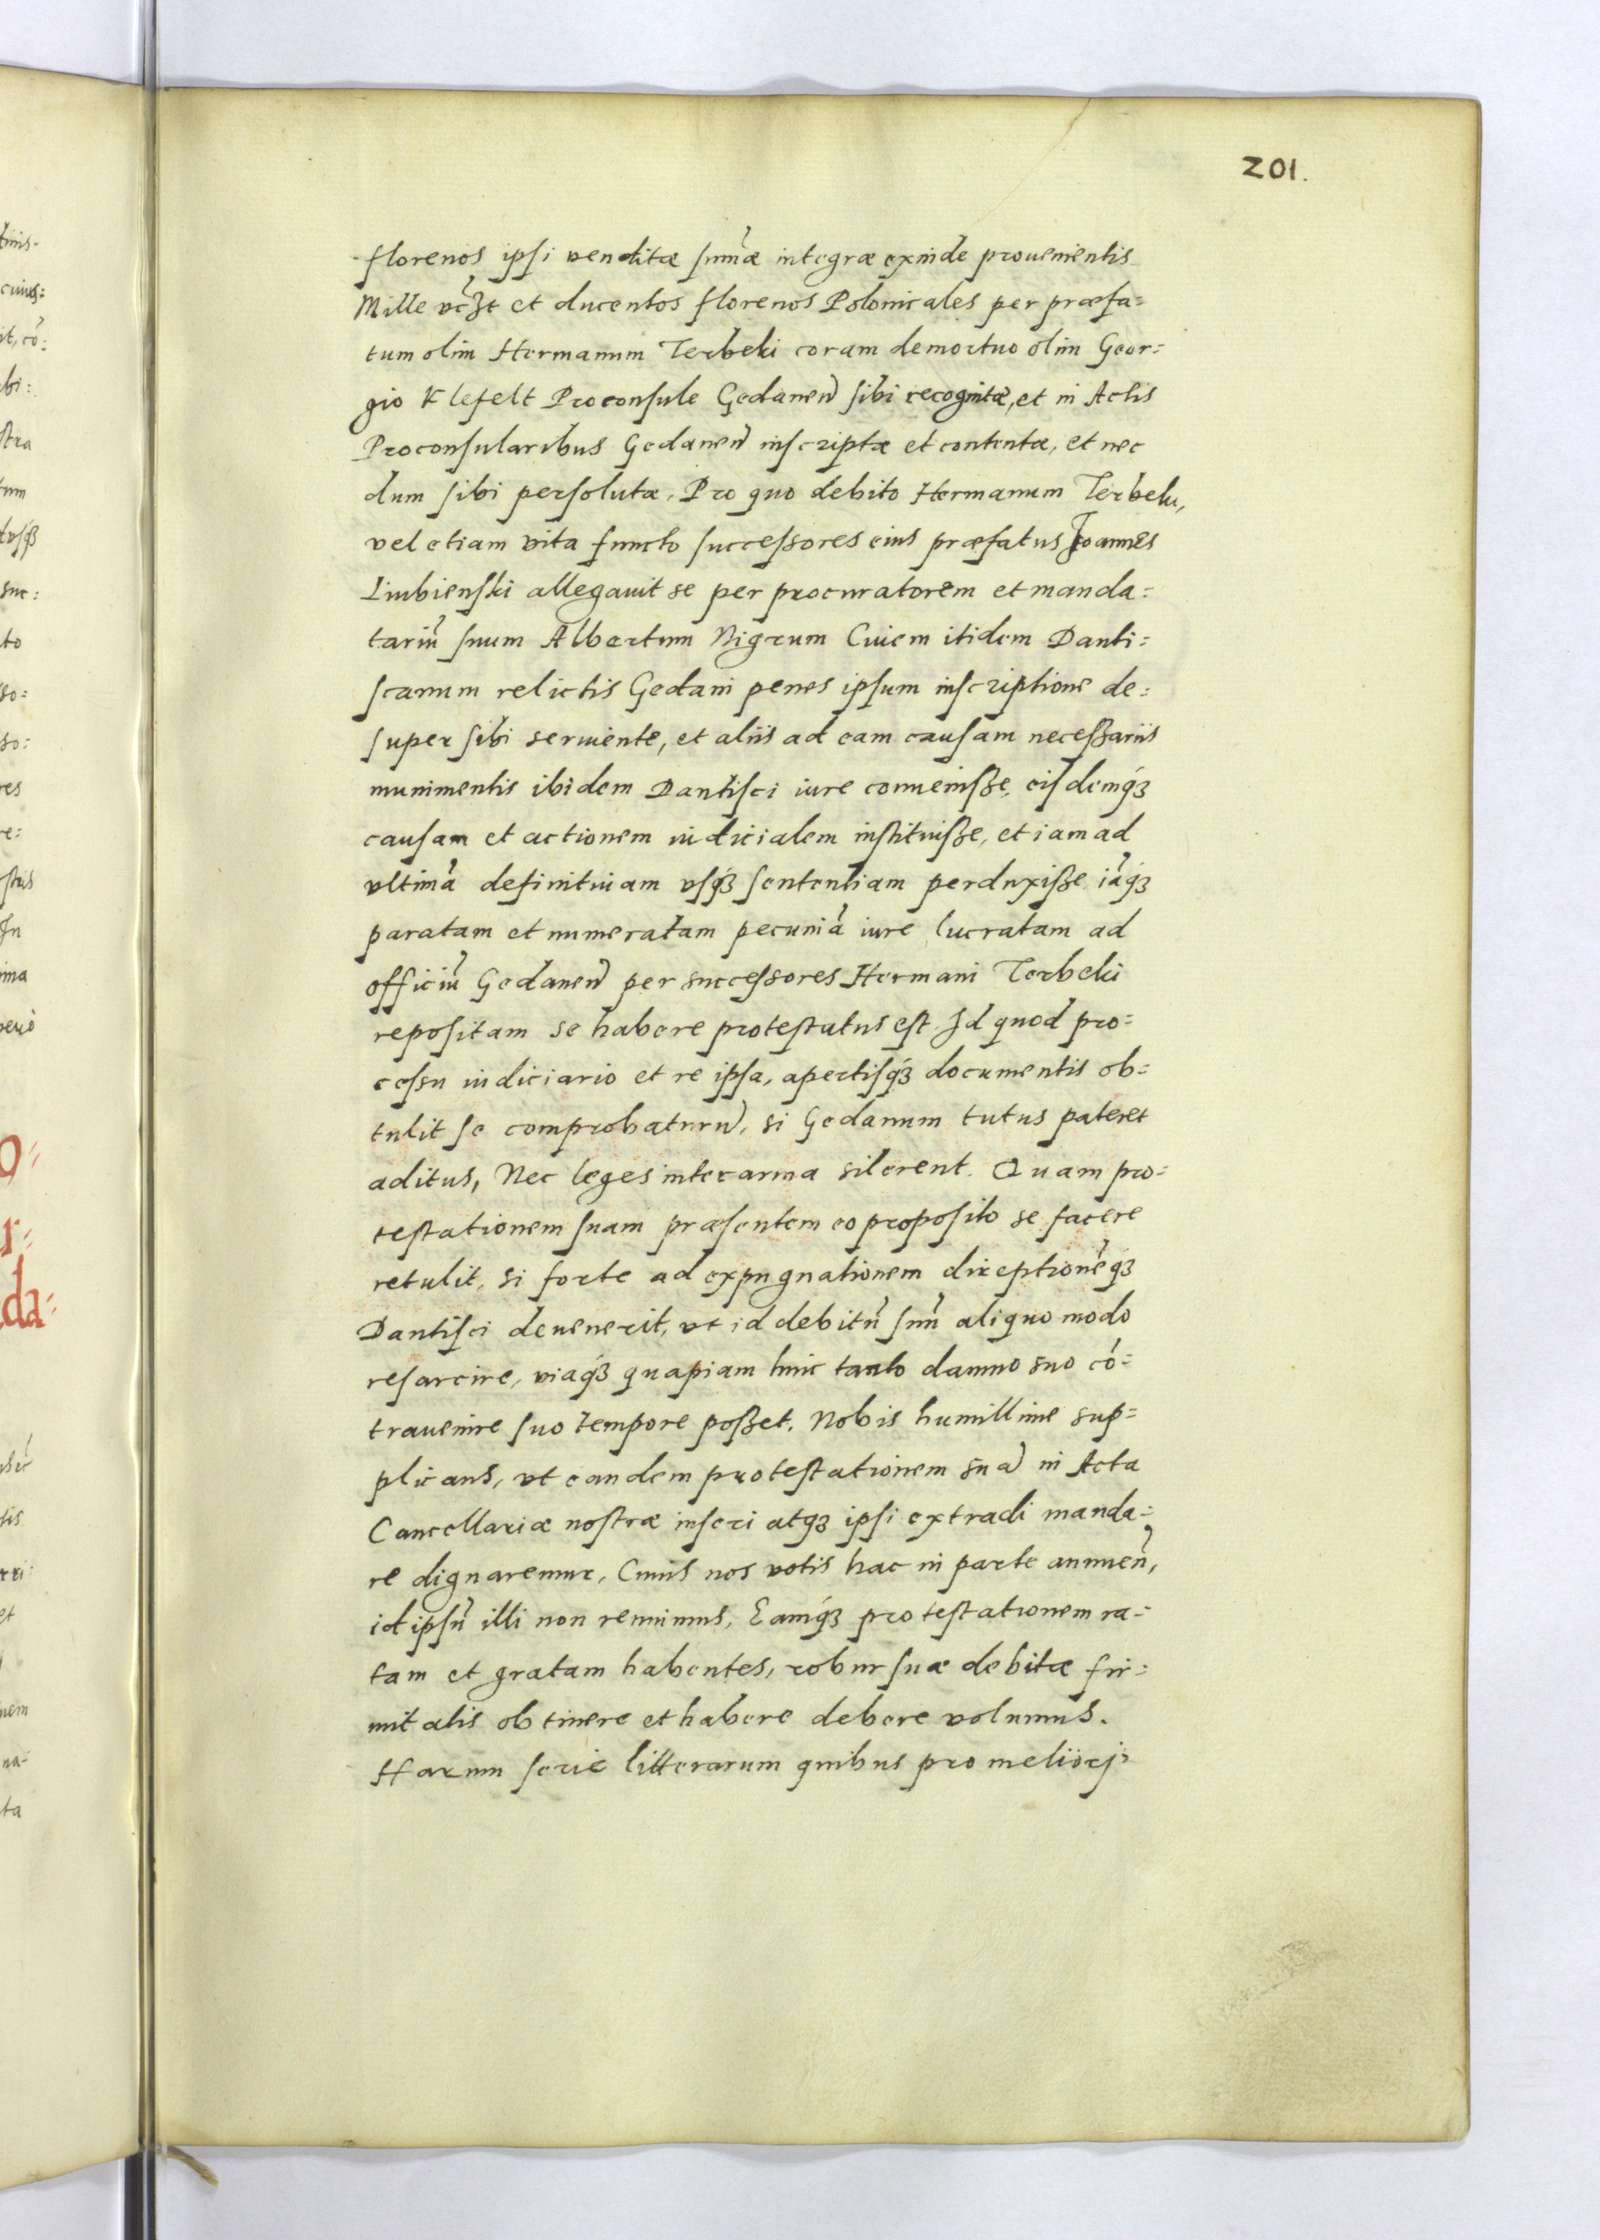 201.
florenos ipsi venditæ sum̃æ integræ exinde prouenientis
Mille vczt et ducentos florenos Polonicales per præfa=
tum olim Hermanum Terbeki coram demortuo olim Geor=
gio Klefelt Proconsule Gedaneñ sibi recognitæ, et in Actis
Proconsularibus Gedaneñ inscriptæ et contentæ, et nec
dum sibi persolutæ. Pro quo debito Hermanum Terbeki,
vel etiam vita functo successores eius præfatus Joannes
Lubienski allegauit se per procuratorem et manda=
tariũ suum Albertum Nigrum Ciuem itidem Danti=
scanum relictis Gedani penes ipsum inscriptione de=
super sibi seruiente, et aliis ad eam causam necessariis
munimentis ibidem Dantisci iure conuenisse, eisdemq3
causam et actionem iudicialem instituisse, et iam ad
vltimã definitiuam vsq3 sententiam perduxisse iãq3
paratam et numeratam pecuniã iure lucratam ad
officiũ Gedaneñ per successores Hermani Terbeki
repositam se habere protestatus est. Id quod pro=
cessu iudiciario et re ipsa, apertisq3 documentis ob=
tulit se comprobaturũ, si Gedanum tutus pateret
aditus, Nec leges inter arma silerent. Quam pro=
testationem suam præsentem eo proposito se facere
retulit, si forte ad expugnationem direptionẽq3
Dantisci deuenerit, vt id debitũ suũ aliquo modo
resarcire, viaq3 quapiam huic tanto damno suo cõ=
trauenire suo tempore posset. Nobis humillime sup=
plicans, vt eandem protestationem suã in Acta
Cancellariæ nostræ inseri atq3 ipsi extradi manda=
re dignaremur, Cuius nos votis hac in parte annueñ,
id ipsũ illi non renuimus, Eamq3 protestationem ra=
tam et gratam habentes, robur suæ debitæ fir=
mitatis obtinere et habere debere volumus.
Harum serie litterarum quibus pro meliorj